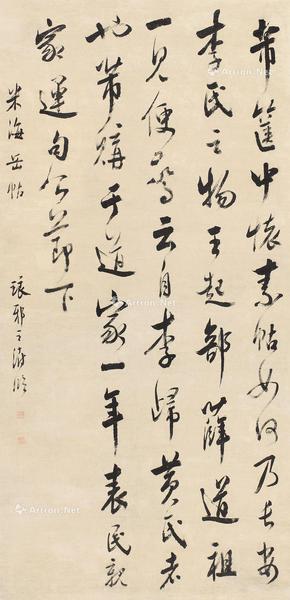 芾篋中懷素帖如何乃長安
李氏之物王起部薛道祖
一見便驚云自李歸黃氏者
也芾購于道家一年表民親
家運句公節下
米海岳帖
琅邪王澍臨
Artron.Net
Artron.Net
Artron.Net
Artron.Net